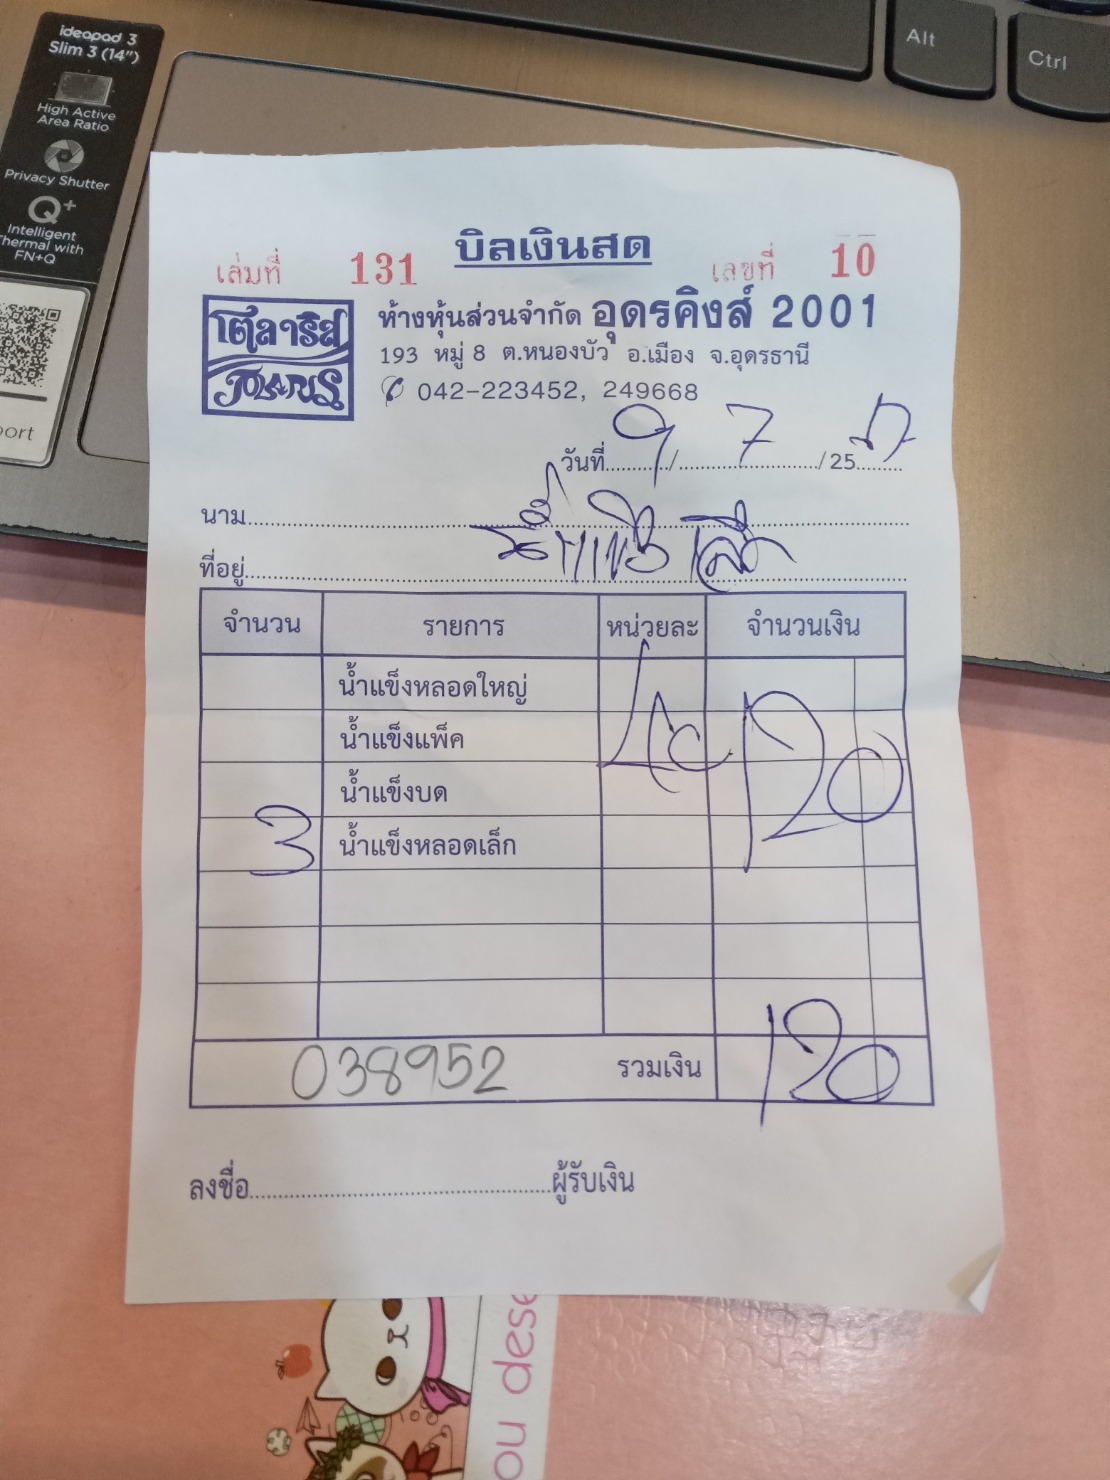 ideapad 3
Slim 3 (14")
High Active
Area Ratio
Privacy Shutter
Q+
Intelligent
Thermal with
FN+Q
port
Alt
Ctrl
บิลเงินสด
เล่มที่ 131
เลขที่ 10
โตลาริส
TOLARIS
ห้างหุ้นส่วนจำกัด อุดรคิงส์ 2001
193 หมู่ 8 ต.หนองบัว อ.เมือง จ.อุดรธานี
042-223452, 249668
วันที่ 9 / 7 / 25
นาม
ที่อยู่
จำนวน รายการ หน่วยละ จำนวนเงิน
น้ำแข็งหลอดใหญ่
น้ำแข็งแพ็ค 40 120
น้ำแข็งบด
3 น้ำแข็งหลอดเล็ก
038952 รวมเงิน 120
ลงชื่อ ผู้รับเงิน
ou dese